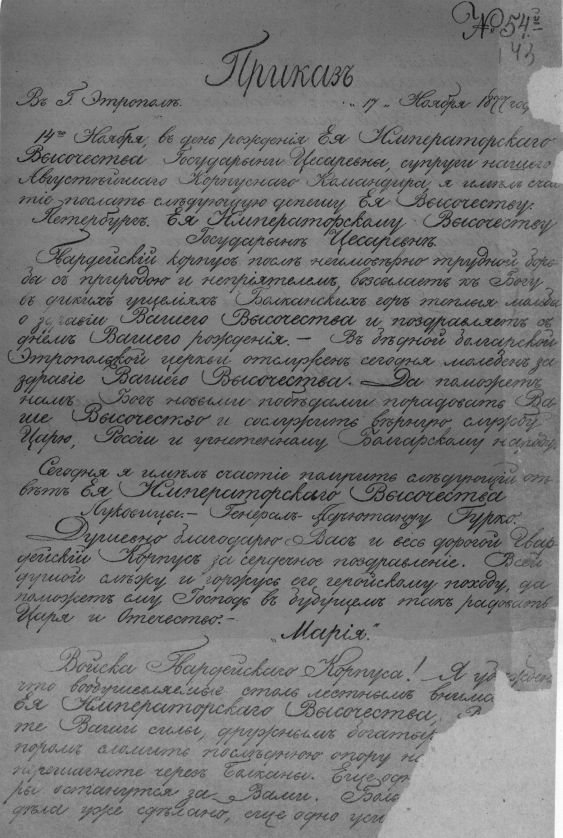 № 54й
43
Приказъ
Въ Г. Этрополѣ. „17„ Ноября 1877 год
14го Ноября, въ день рожденія Ея Императорскаго
Высочества Государыни Цесаревны, супруги нашего
Августѣйшаго Корпуснаго Командира, я имѣлъ счас-
тіе послать слѣдующую депешу Ея Высочеству.
Петербургъ. Ея Императорскому Высочеству
Государынѣ Цесаревнѣ
Гвардейскій корпусъ послѣ неимовѣрно трудной борь-
бы съ природою и непріятелемъ, возсылаетъ къ Богу
въ дикихъ ущеліяхъ Балканскихъ горъ теплыя мольбы
о здравіи Вашего Высочества и поздравляетъ съ
днемъ Вашего рожденія. — Въ бѣдной болгарской
Этропольской церкви отслуженъ сегодня молебенъ за
здравіе Вашего Высочества. — Да поможетъ
намъ Богъ новыми побѣдами порадовать Ва-
ше Высочество и сослужить вѣрную службу
Царю, Россіи и угнетенному Болгарскому народу.
Сегодня я имѣлъ счастіе получить слѣдующій от-
вѣтъ Ея Императорскаго Высочества
Генералъ-Адъютанту Гурко.
Душевно благодарю Васъ и весь дорогой Гвар-
дейскій Корпусъ за сердечное поздравленіе. Всей
душой слѣжу и горжусь его геройскому походу, да
поможетъ ему Господь въ будущемъ такъ радовать
Царя и Отечество. —
„Марія."
Войска Гвардейскаго Корпуса! Я
что воодушевляемые столь лестнымъ
Ея Императорскаго Высочества,
те Ваши силы, дружнымъ
поромъ сломить послѣднюю опору
перешагнете черезъ Балканы. Еще
ры останутся за Вами.
дѣла уже сдѣлано, еще одно